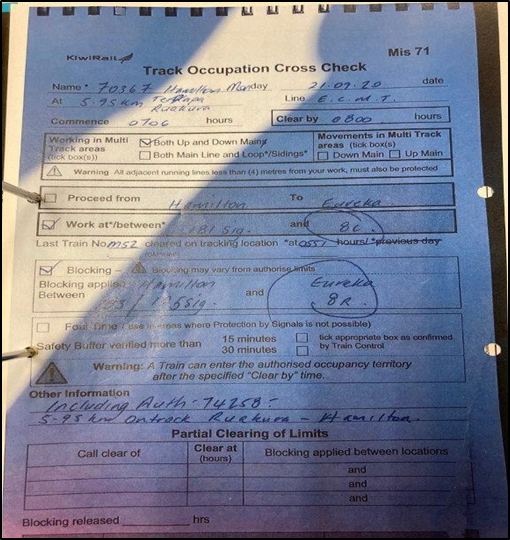 KiwiRail
Mis 71
Track Occupation Cross Check
Name* 70367 Hamilton Monday 21.09.20 date
At 5.95km Te Rapa Ruakura Line E.C.M.T.
Commence 0706 hours Clear by 0800 hours
Working in Multi Track areas (tick box(s)) Both Up and Down Mains
Both Main Line and Loop*/Sidings*
Movements in Multi Track areas (tick box(s))
Down Main Up Main
Warning All adjacent running lines less than (4) metres from your work, must also be protected
Proceed from Hamilton To Eureka
Work at*/between* Sig. and 8R.
Last Train No M52 cleared on tracking location *at 0551 hours/ *previous day
Blocking – Blocking may vary from authorise limits
Blocking applied Between Hamilton Sig. and Eureka 8R.
Foul Time / use in areas where Protection by Signals is not possible)
Safety Buffer verified more than 15 minutes
30 minutes
tick appropriate box as confirmed by Train Control
Warning: A Train can enter the authorised occupancy territory
after the specified "Clear by" time.
Other Information
Including Auth. 74258:
5.95km Ontrack Ruakura – Hamilton.
Partial Clearing of Limits
Call clear of Clear at (hours) Blocking applied between locations
and
and
and
Blocking released hrs